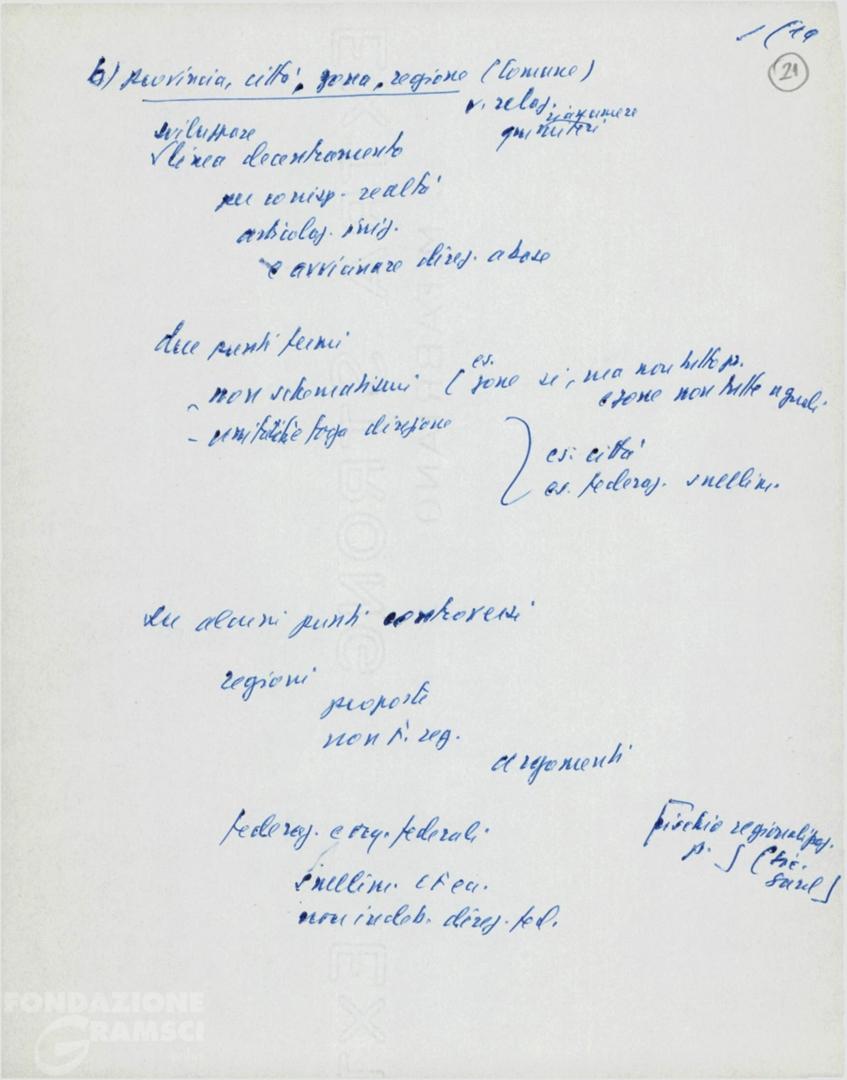 21
b) provincia, città, zona, regione (Comune)
v. relaz. riassumere
sviluppare
linea decentramento
per corrisp. realtà
articolaz. iniz.
e avvicinare direz. a base
due punti fermi
- non schematismi (es. zone sì, ma non tutto pr.
e zone non tutte uguali
- unità e forza direzione
es. città
es. federaz. snellim.
su alcuni punti controversi
regioni
proposte
non t. reg.
argomenti
federaz. e org. federali
[rischio regionalizzaz.
p. ] (Sic.
Sard]
snellim. CF ecc.
non indeb. direz. fed.
FONDAZIONE
GRAMSCI